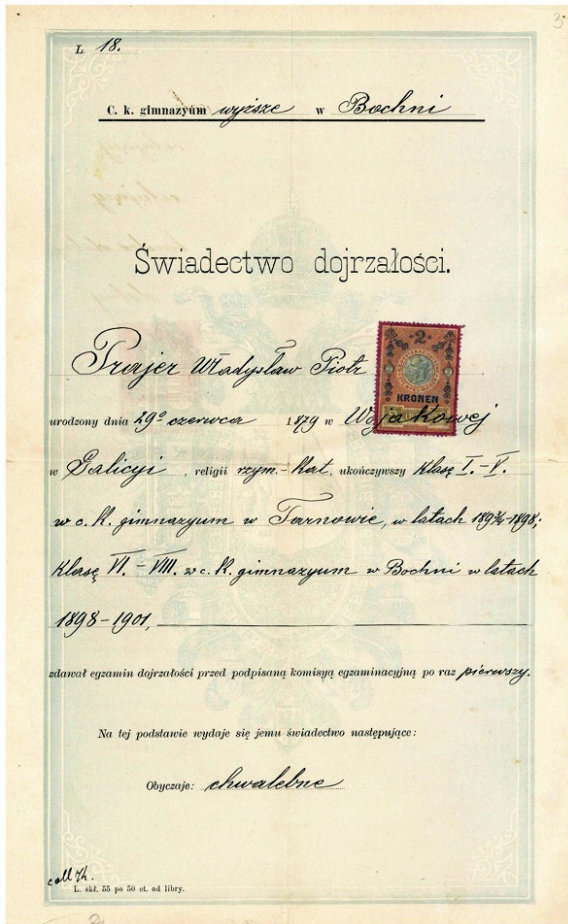 3.
L. 18.
C. k. gimnazyum wyższe w Bochni
Świadectwo dojrzałości.
Prajer Władysław Piotr
2
KRONEN
urodzony dnia 29º czerwca 1879 w Wojakowej
w Galicyi, religii rzym.-kat. ukończywszy klasę I.-V.
w c. k. gimnazyum w Tarnowie, w latach 1892/3-1898;
klasę VI.-VIII. w c. k. gimnazyum w Bochni w latach
1898-1901,
zdawał egzamin dojrzałości przed podpisaną komisyą egzaminacyjną po raz pierwszy.
Na tej podstawie wydaje się jemu świadectwo następujące:
Obyczaje: chwalebne
L. skł. 55 po 50 ct. od libry.